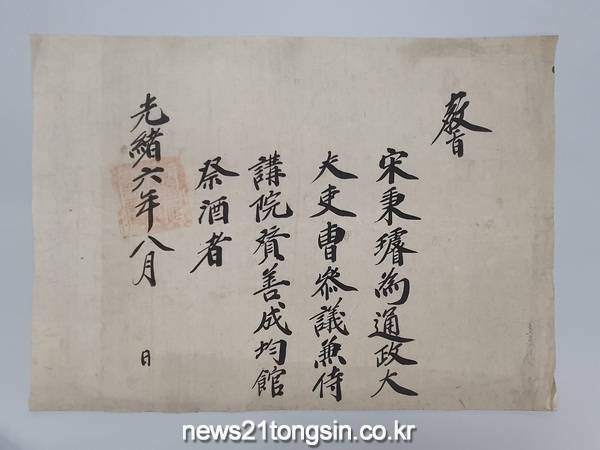 敎旨
宋秉璿為通政大
夫吏曹參議兼侍
講院贊善成均館
祭酒者
光緒六年八月 日
news21tongsin.co.kr